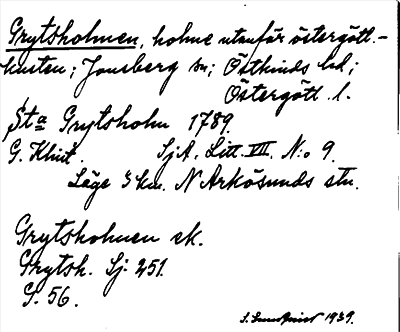 Grytsholmen, holme utanför östergötl.-
kusten; Jonsberg sn; Östkinds hd;
Östergötl. l.
Sta Grytsholm 1789.
G. Klint. SjA. Litt. VII. N:o 9.
Läge 3 km. N Arkösunds stn.
Grytsholmen ek.
Grytsh. Sj: 251.
G. 56.
S. Sundqvist 1939.